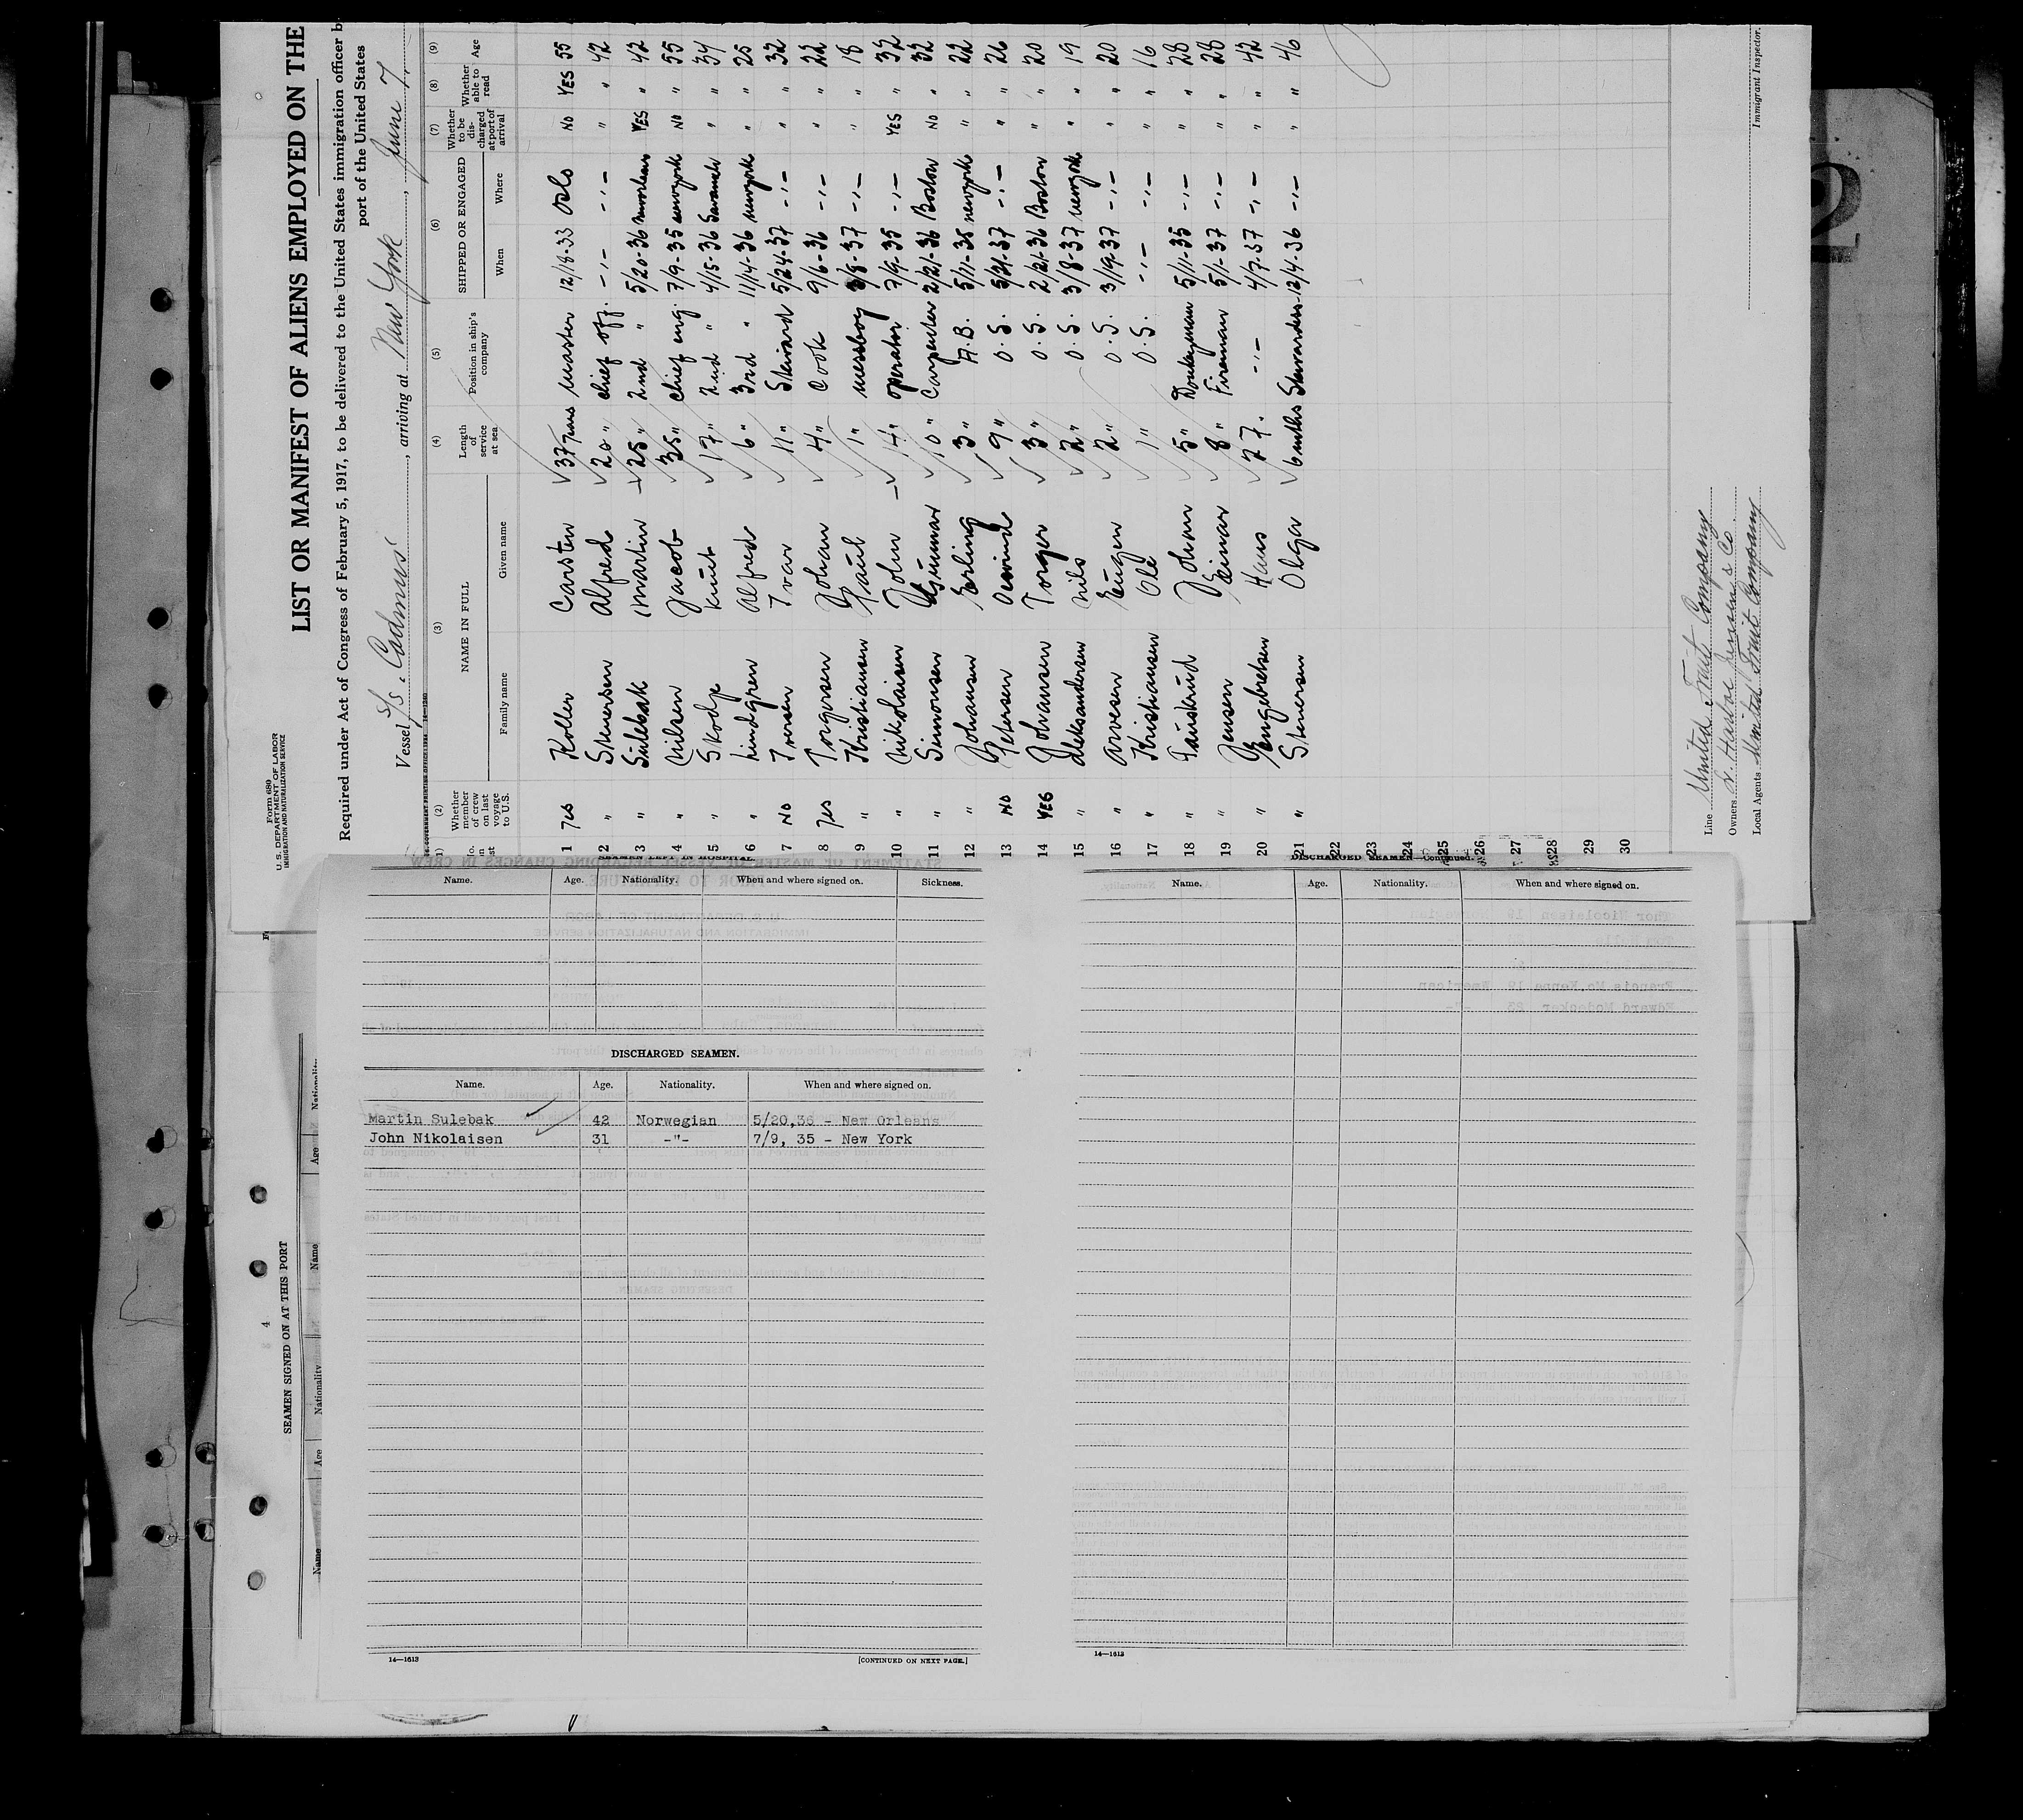 Form 680
U. S. DEPARTMENT OF LABOR
IMMIGRATION AND NATURALIZATION SERVICE
LIST OR MANIFEST OF ALIENS EMPLOYED ON THE
Required under Act of Congress of February 5, 1917, to be delivered to the United States immigration officer b
port of the United States
Vessel S/S. Cadmus, arriving at New York, June 7,
(2) (3) (4) (5) (6) (7) (8) (9)
Whether member of crew on last voyage to U.S. NAME IN FULL Length of service at sea Position in ship's company SHIPPED OR ENGAGED Whether to be discharged at port of arrival Whether able to read Age
Family name Given name When Where
1 Yes Koller Carsten 37 Years Master 12/18-33 Oslo NO YES 55
2 " Stenersen Alfred 20 " chief off. -"- -"- " " 42
3 " Sulebak Martin 25 " 2nd " 5/20-36 Neworleans YES " 42
4 " Nilsen Jacob 35 " chief eng. 7/9-35 newyork NO " 55
5 " Skodje Knut 17 " 2nd " 4/15-36 Savanah " " 34
6 " Lindgren Alfred 6 " 3rd " 11/14-36 newyork " " 25
7 NO Iversen Ivar 11 " Steward 5/24-37 -"- " " 32
8 Yes Torgersen Johan 4 " Cook 9/6-36 -"- " " 22
9 " Kristiansen Paul 1 " messboy 3/8-37 -"- " " 18
10 " Nikolaisen John 14 " operator 7/9-35 -"- YES " 32
11 " Simonsen Gunnar 10 " Carpenter 2/21-36 Boston NO " 32
12 " Johansen Erling 3 " A.B. 5/11-35 newyork " " 22
13 NO Petersen 9 " O.S. 5/21-37 -"- " " 26
14 YES Johansen Torger 3 " O.S. 2/21-36 Boston " " 20
15 " Aleksandersen Nils 2 " O.S. 3/8-37 newyork " " 19
16 " Arvesen Eugen 2 " O.S. 3/19-37 -"- " " 20
17 " Kristiansen Ole 1 " O.S. -"- -"- " " 16
18 " Tauskrud Johan 5 " Donkeyman 5/11-35 -"- " " 28
19 " Jensen Einar 8 " Fireman 5/1-37 -"- " " 28
20 " Engebretsen Hans 27. -"- 4/7-37 -"- " " 42
21 " Stenersen Olga 6 mnths 12/4-36 -"- " " 46
22
23
24
25
26
27
28
29
30
Line United Fruit Company
Owners
Local Agents United Fruit Company
Immigrant Inspector.
SEAMEN LEFT IN HOSPITAL
Name. Age. Nationality. When and where signed on. Sickness.
DISCHARGED SEAMEN.
Name. Age. Nationality. When and where signed on.
Martin Sulebak 42 Norwegian 5/20,36 - New Orleans
John Nikolaisen 31 -"- 7/9, 35 - New York
14—1613 [CONTINUED ON NEXT PAGE.]
DISCHARGED SEAMEN—Continued.
Name. Age. Nationality. When and where signed on.
14—1613
4
SEAMEN SIGNED ON AT THIS PORT
Name Age Nationality Name Age Nationality
2